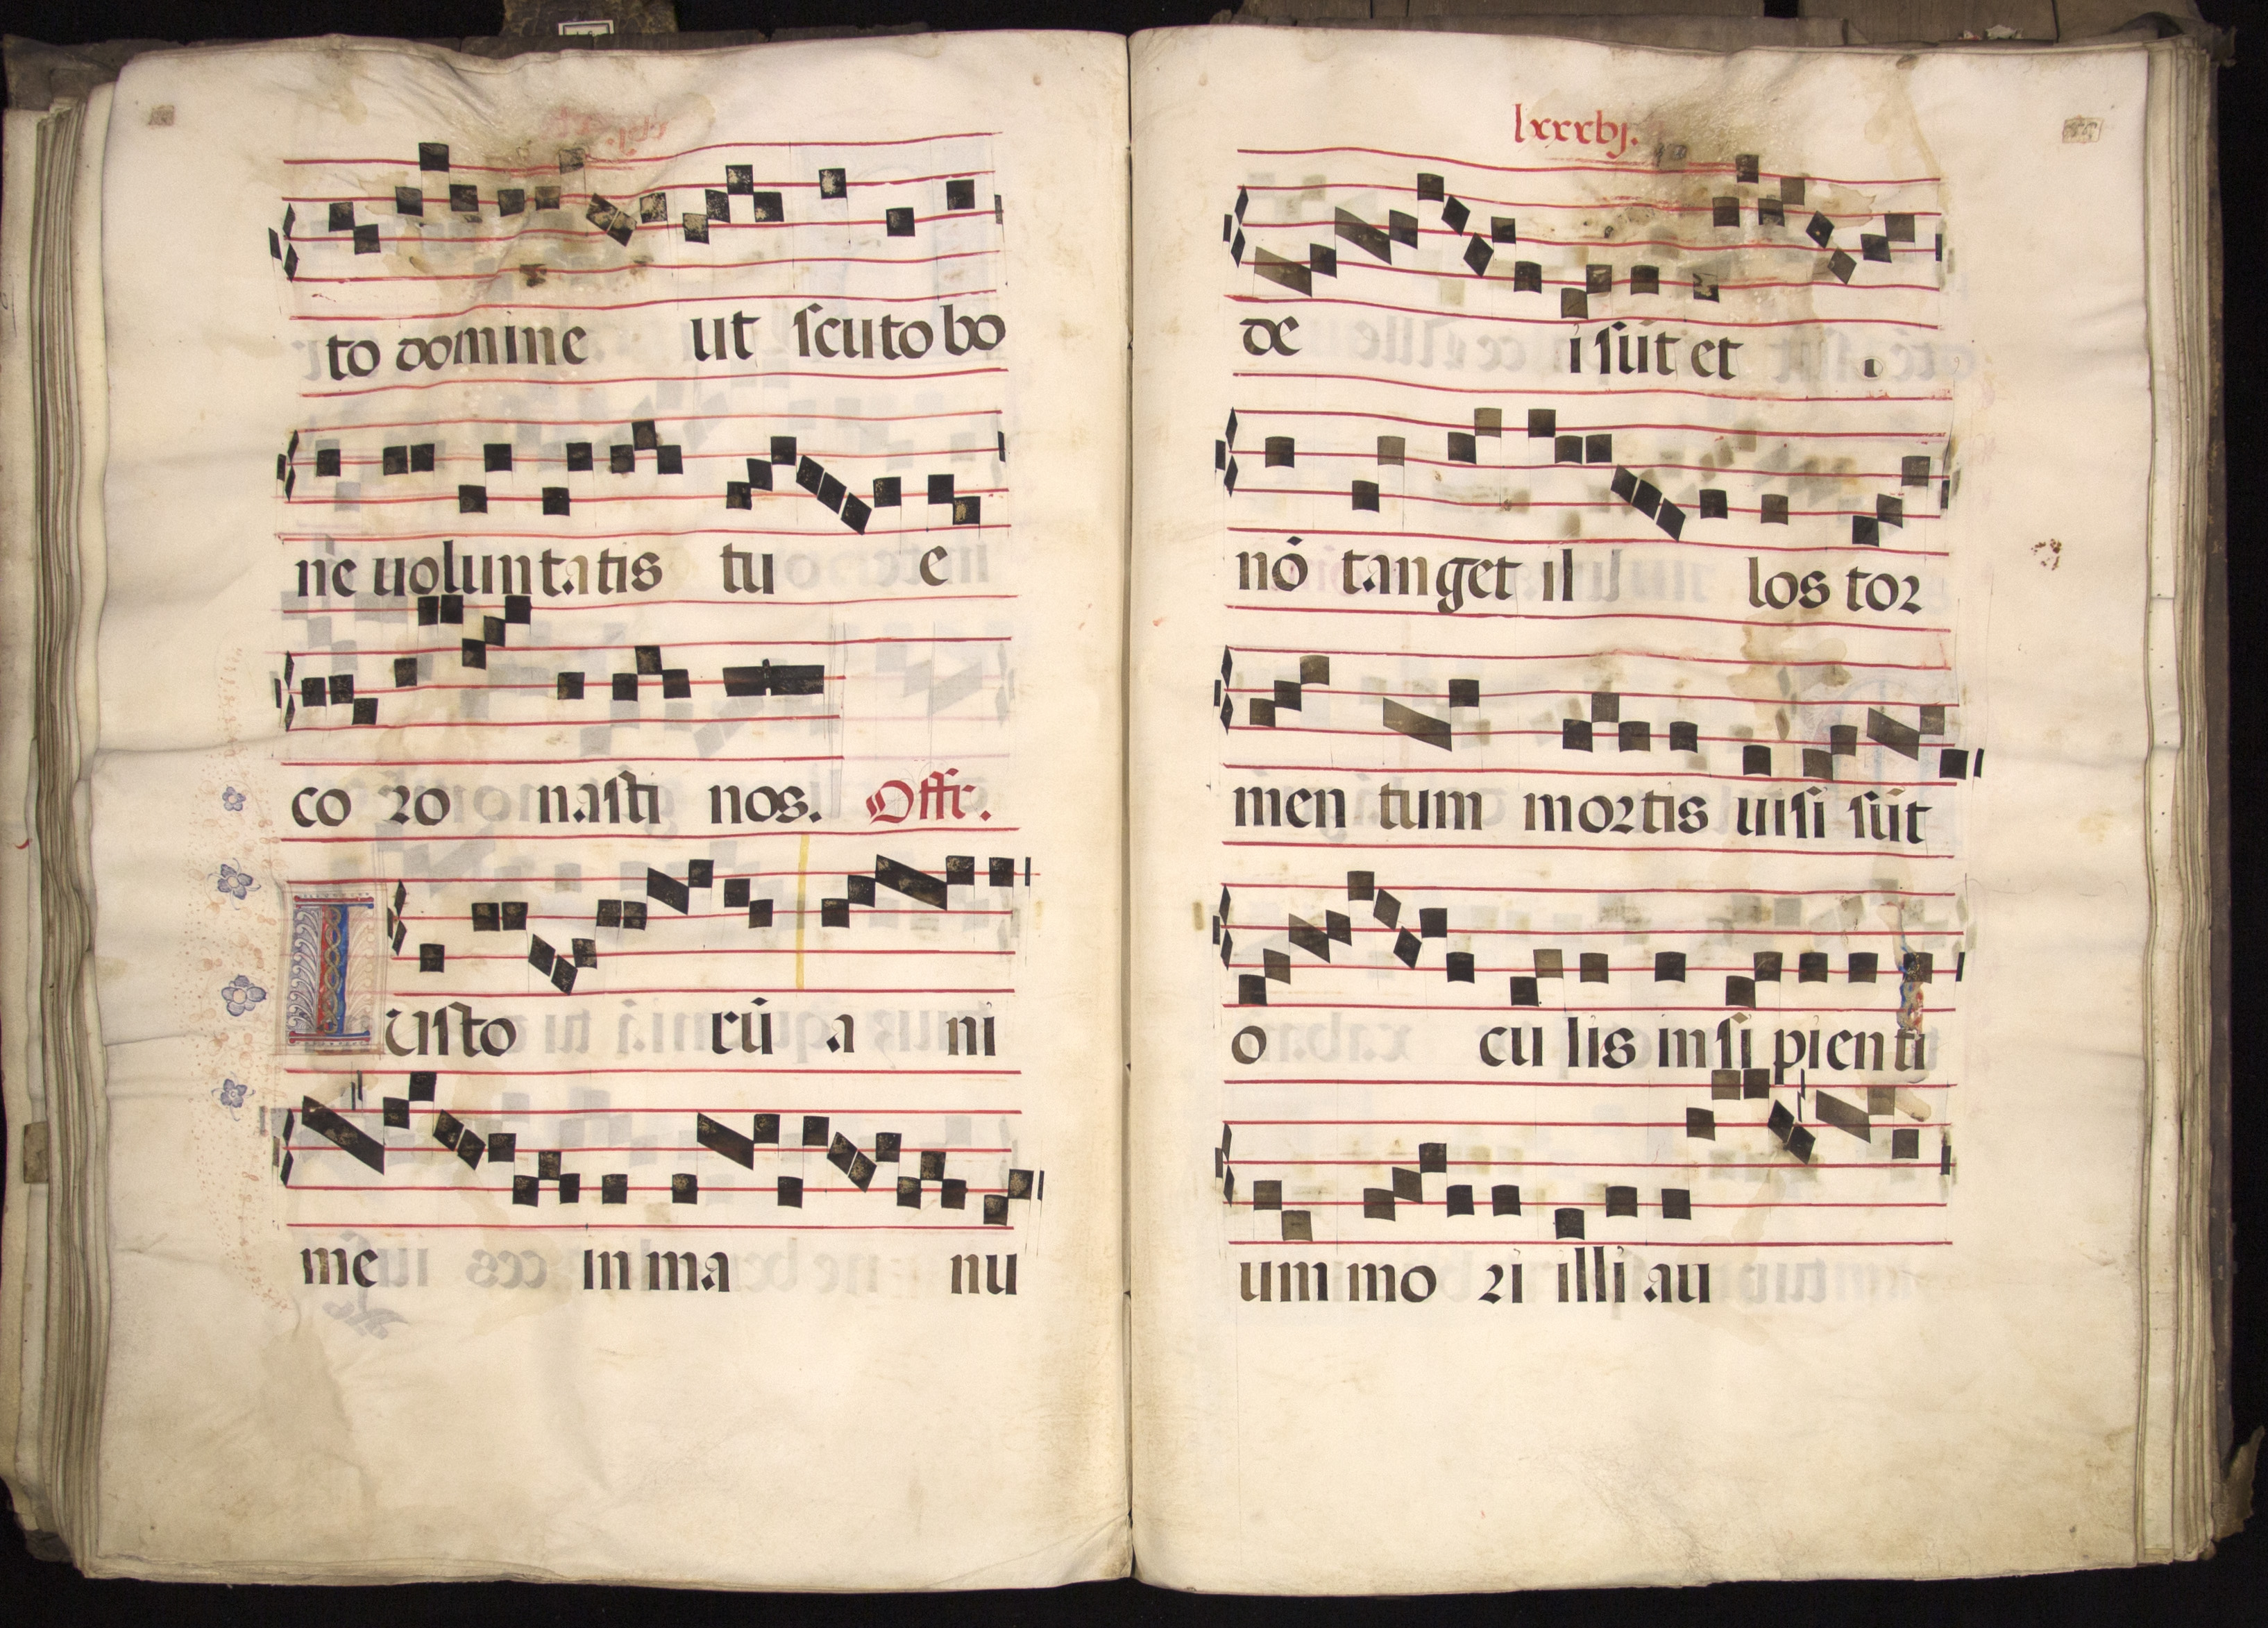 to domine ut scuto bo
ne uoluntatis tu e
co ro nasti nos. Offr.
Iusto rū a ni
me in ma nu
lxxxvj.
de i sūt et
nō tanget il los tor
men tum mortis uisi sūt
o cu lis insi pienti
um mo ri illi au